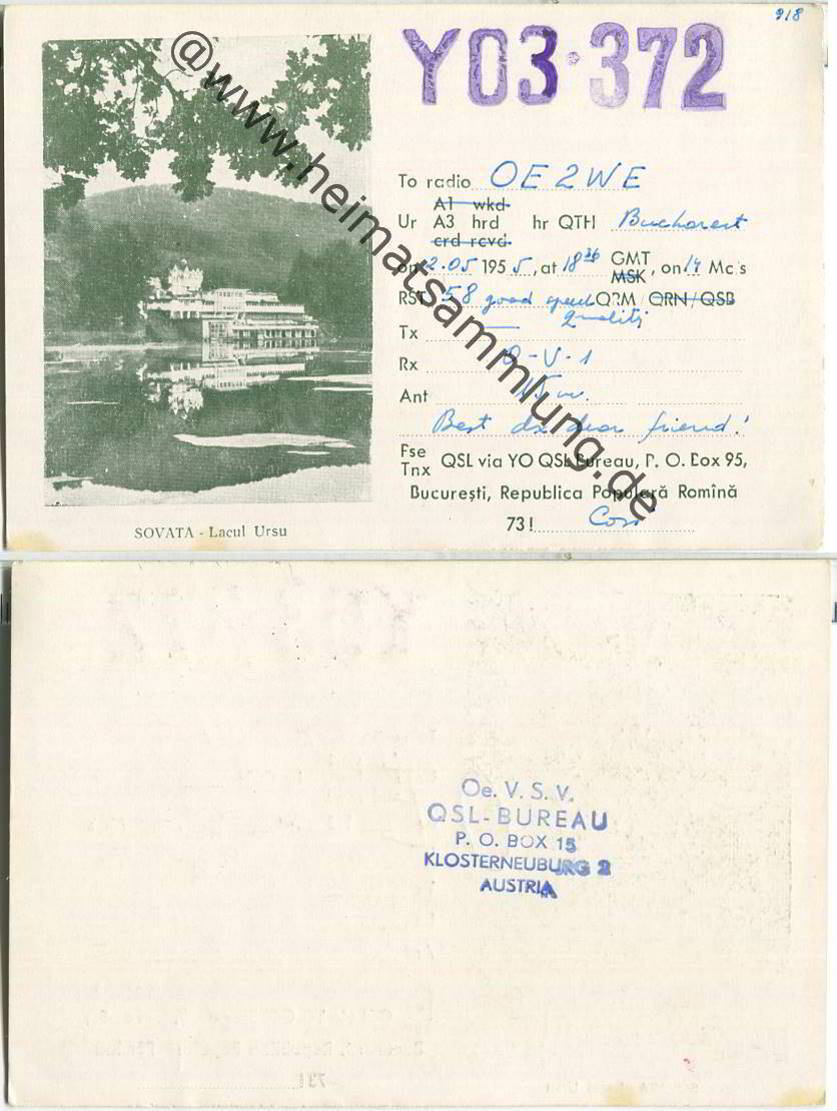 918
YO3·372
To radio OE2WE
A1 wkd.
Ur A3 hrd hr QTH Bucharest
crd rcvd.
on 2.05 1955, at 18 36 GMT MSK, on 14 Mc's
RST 58 good speech QRM QRN/QSB
quality
Tx —
Rx 0-V-1
Ant
Best dx dear friend!
Fse Tnx QSL via YO QSL Bureau, P. O. Box 95,
București, Republica Populară Romînă
73!
SOVATA - Lacul Ursu
@www.heimatsammlung.de
Oe. V. S. V.
QSL-BUREAU
P. O. BOX 15
KLOSTERNEUBURG 2
AUSTRIA